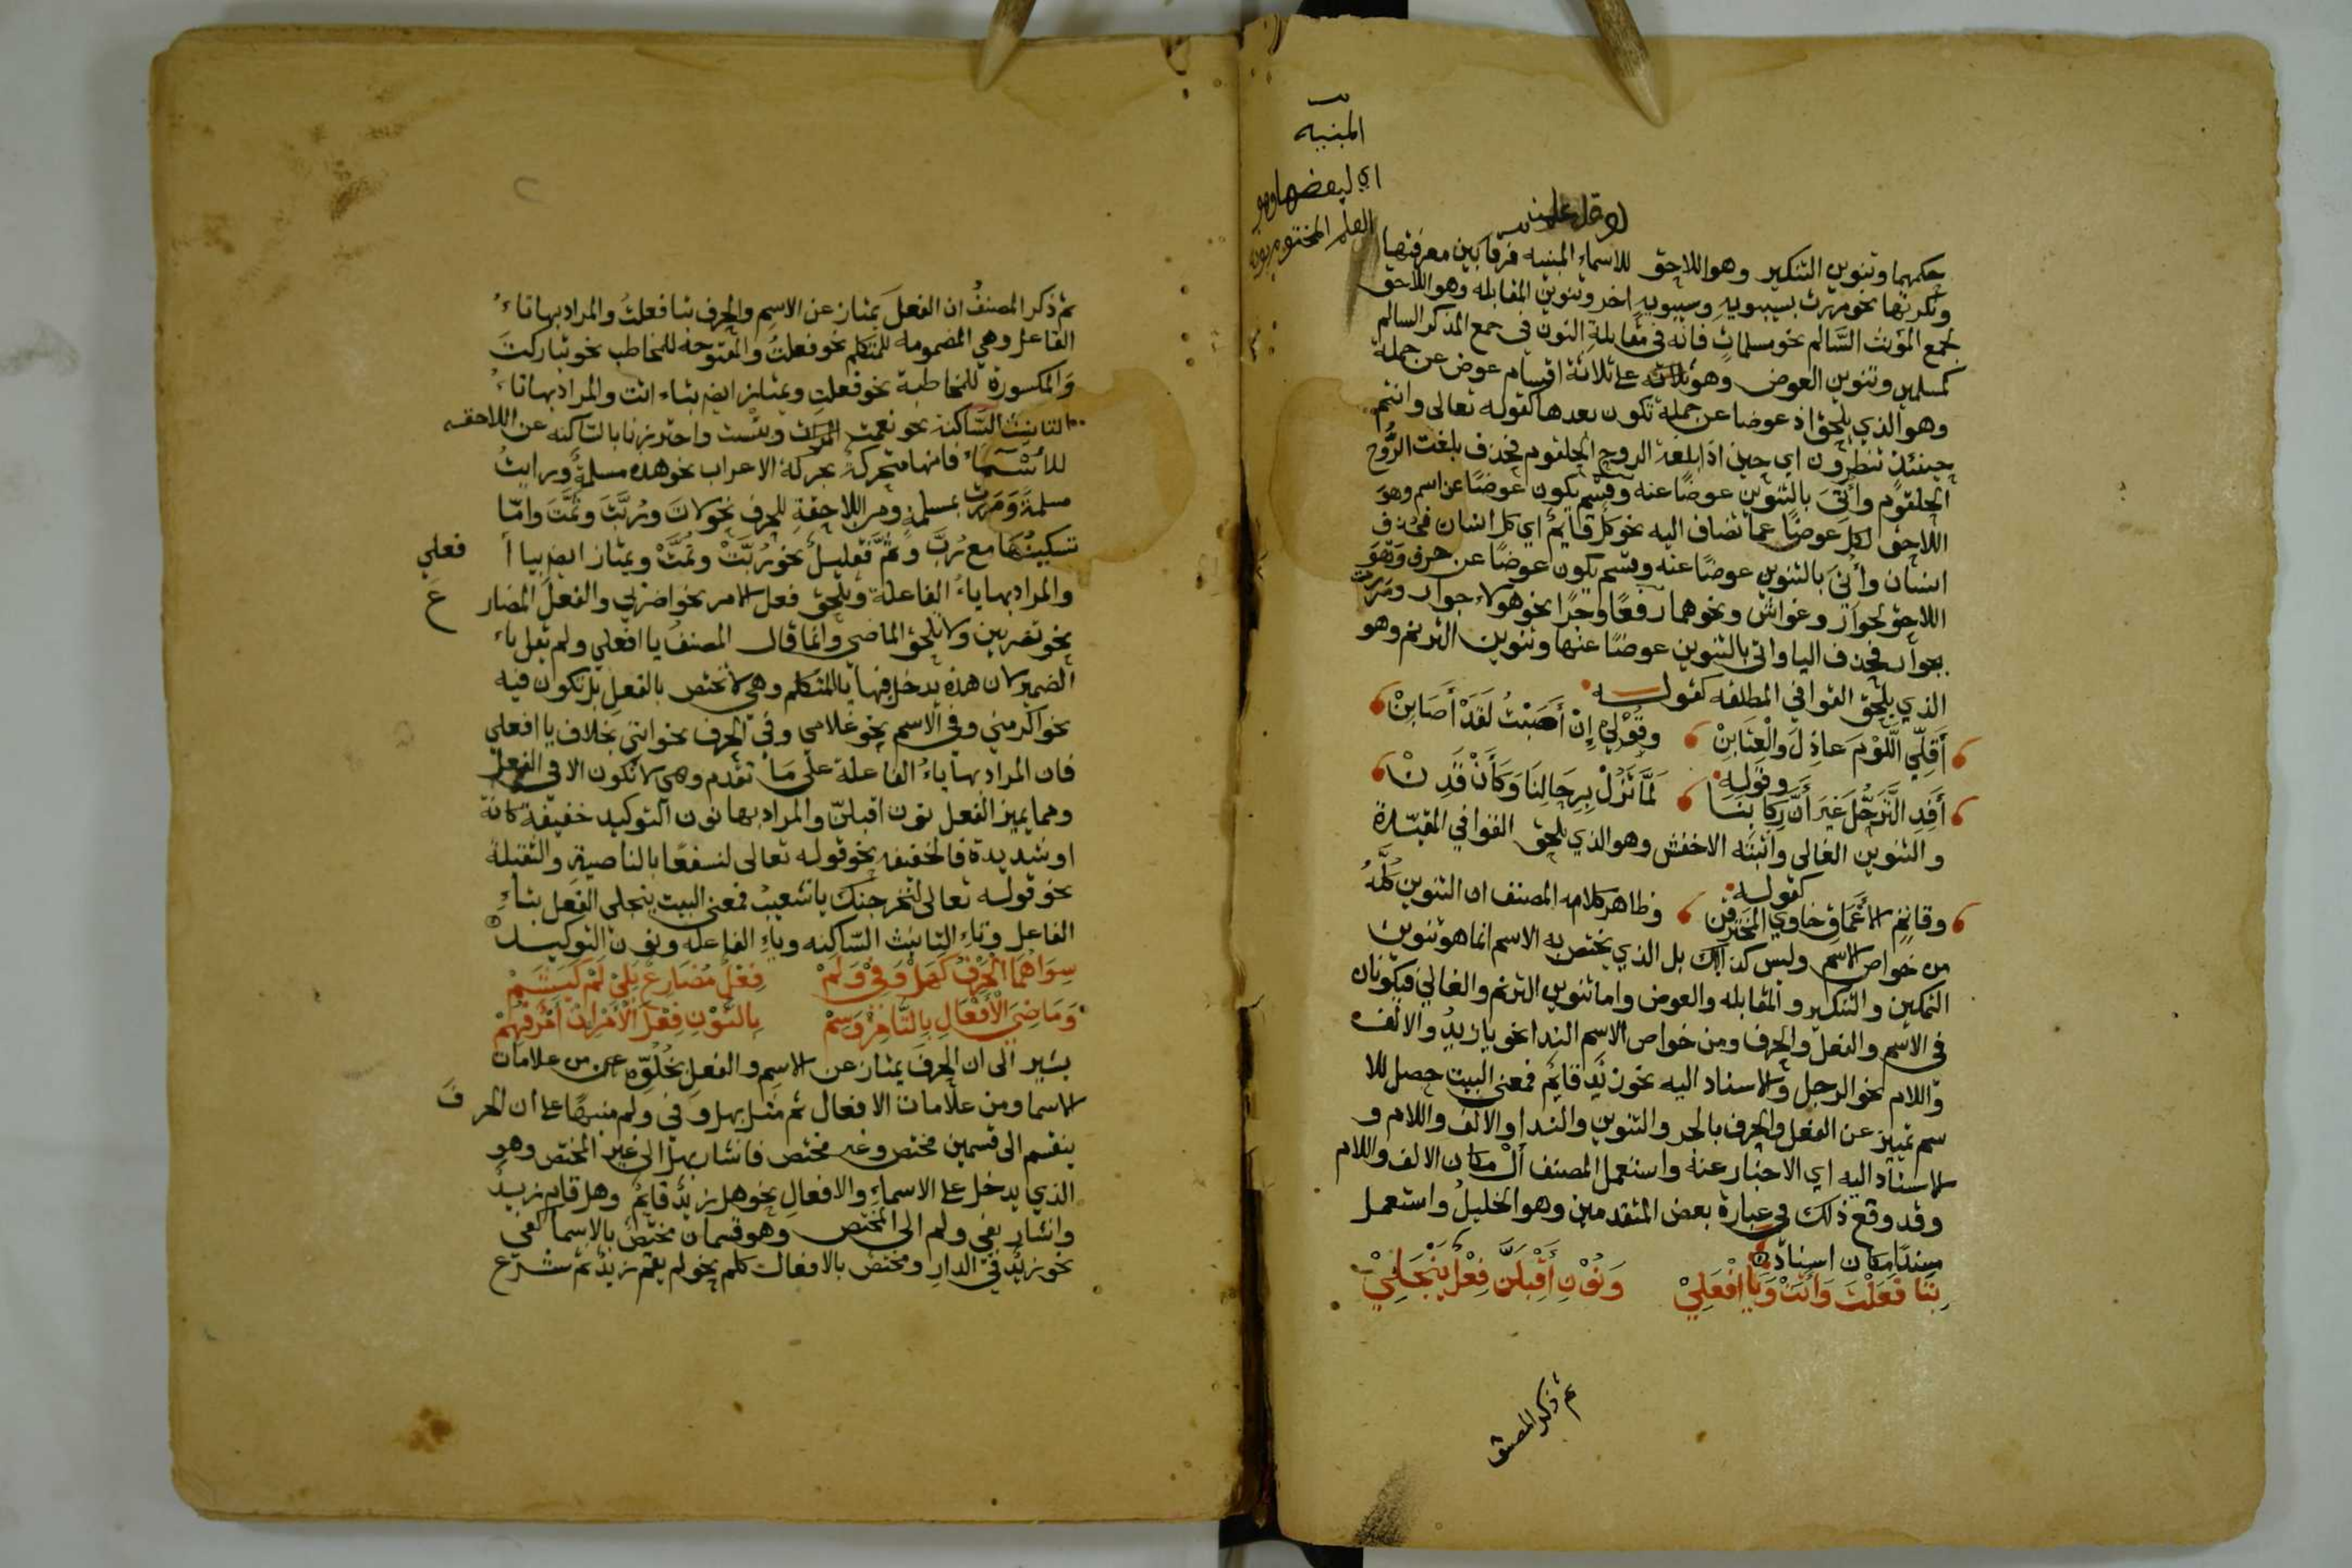 المبنيه
اي لبعضها وهو
العلم المختوم بويه
حكمهما وتنوين التنكير وهو اللاحق للاسماء المبنيه فرقا بين معرفتها
ونكرتها نحو مررت بسيبويهِ وسيبويهٍ اخر وتنوين المقابله وهو اللاحق
لجمع المؤنث السَّالم نحو مسلماتٍ فانه في مقابلةِ النون في جمع المذكر السالم
كمسلمين وتنوين العوض وهو على ثلاثة اقسام عوض عن جملة
وهو الذي يلحق اذ عوضا عن جملة تكون بعدها كقوله تعالى وانتم
حينئذٍ تنظرون اي حين اذ ابلغت الروح الحلقوم فحذف بلغت الرُّوح
الحلقوم واُتِيَ بالتنوين عوضًا عنه وقسم يكون عوضًا عن اسم وهو
اللاحق لكل عوضًا عما تضاف اليه نحو كلٌ قايمٌ اي كل انسان فحُذف
انسان وأُتيَ بالتنوين عوضًا عنه وقسم يكون عوضًا عن حرف وَهوَ
اللاحق لجوارٍ وغواشٍ ونحوهما رفعًا وجرًا نحو هولاء جوارٍ ومَررت
بجوارٍ فحذف اليا واتى بالتنوين عوضًا عنها وتنوين الترنم وهو
الذي يلحق القوافي المطلقه كقوله
أَقِلِّي اللَّوْمَ عاذِلَ والْعِتَابَنْ وقُوْلِي إِنْ أَصَبْتُ لَقَدْ أَصَابَنْ
وقوله
أَفِدِ التَّرَحُّلُ غَيرَ أنَّ رِكَابَنَا لَمَّا تَزُلْ بِرِحَالِنَا وَكَأَنْ قَدِنْ
والتنوين الغالى واثبته الاخفش وهو الذي يلحق القوافي المقيّدة
كقوله
وقاتِمِ الأعْمَاقِ خاوِي المُخْتَرَقْنْ وظاهر كلام المصنف ان التنوين كلَّهُ
من خواص الاسم وليس كذلك بل الذي يختص به الاسم انما هو تنوين
التمكين والتنكير والمقابله والعوض واما تنوين الترنم والغالي فيكونان
في الاسم والفعل والحرف ومن خواص الاسم الندا نحو يا زيدُ والالف
واللام نحو الرجل والاسناد اليه نحو زَيد قايمٌ فمعنى البيت حصل للا
سم تمييز عن الفعل والحرف بالجر والتنوين والندا والالف واللام و
الاسناد اليه اي الاخبار عنه واستعمل المصنف أَلْ مكان الالف واللام
وقد وقع ذلك في عبارة بعض المتقدمين وهو الخليلُ واستعمل
مسندًا مكان اسناد
بِتَا فَعَلْتَ وَأَتَتْ وَيَا افْعَلِيْ وَنُوْنِ أَقْبِلَنَّ فِعْلٌ يَنْجَلِيْ
ثم ذكر المصنف
ثم ذكر المصنفُ ان الفعلَ يمتاز عن الاسمِ والحرف بتا فعلتُ والمراد بها تاءُ
الفاعل وهي المضمومه للمتكلم نحو فعلتُ والمفتوحة للمخاطب نحو تباركتَ
وَالمكسورة للمخاطبة نحو فعلتِ ويمتاز ايض بتاء اتت والمراد بها تاءُ
التانيث السَّاكنة نحو نعمت المراة وبئست واحترزنا بالساكنه عن اللاحقه
للأسْمآءِ فانها متحركة بحركة الاعراب نحو هذه مسلمةٌ ورايتُ
مسلمةً وَمَررت بمسلمةٍ ومن اللاحقةِ للحرف نحو لات ورُبَّتَ وثُمَّتَ وامّا
تسكينُها مع رُبَّ وثُمَّ فقليلٌ نحو رُبَّتْ وثُمَّتْ ويمتاز ايض بيا أ فعلي
والمراد بها ياءُ الفاعلة ويلحق فعل الامر نحو اضربي والفعل المضار ع
نحو تضربين ولا تلحق الماضي وانما قال المصنفُ يا افعلي ولم يقل ياء
الضمير لان هذه يدخل فيها يا المتكلم وهي لا تختص بالفعلِ بل تكون فيه
نحو اكرمني وفى الاسم نحو غلامي وفى الحرف نحو انني بخلاف يا افعلي
فان المراد بها ياءُ الفاعلة على مَا تقدم وهي لا تكون الا في الفعل
ومما يميز الفعل نون اقبلنّ والمراد بها نون التوكيد خفيفة كانة
او شديدة فالخفيفه نحو قوله تعالى لنسفعًا بالناصيةِ والثقيلة
نحو قوله تعالى لنخرجنك يا شعيبُ فمعنى البيت ينجلي الفعل بتاءِ
الفاعل وتاء التانيث السّاكنه وياءِ الفاعله ونون التوكيد
سِوَاهُمَا الْحَرْفُ كَهَلْ وَفِيْ وَلَمْ فِعْلٌ مُضَارِعٌ يَلِيْ لَمْ كَيَشَمْ
وَمَاضِيَ الأَفْعَالِ بِالتَّا مِزْ وَسِمْ بِالنُّوْنِ فِعْلَ الأَمْرِ إنْ أَمْرٌ فُهِمْ
يشير الى ان الحرفَ يمتاز عن الاسمِ والفعلِ بخُلُوِّه عن من علامات
الاسما ومن علامات الافعال ثم مثل بهل وفى ولم منبهًا على ان الحر فَ
ينقسم الى قسمين مختص وغير مختص فاشار بهل الى غير المختص وهو
الذي يدخل على الاسماءِ والافعالِ نحو هل زيدٌ قايمٌ وهل قام زيدٌ
واشار بفي ولم الى المختص وهو قسمان مختصٌ بالاسما كفى
نحو زيدٌ فى الدارِ ومختص بالافعال كلم نحو لم يقم زيدٌ ثم شرَع